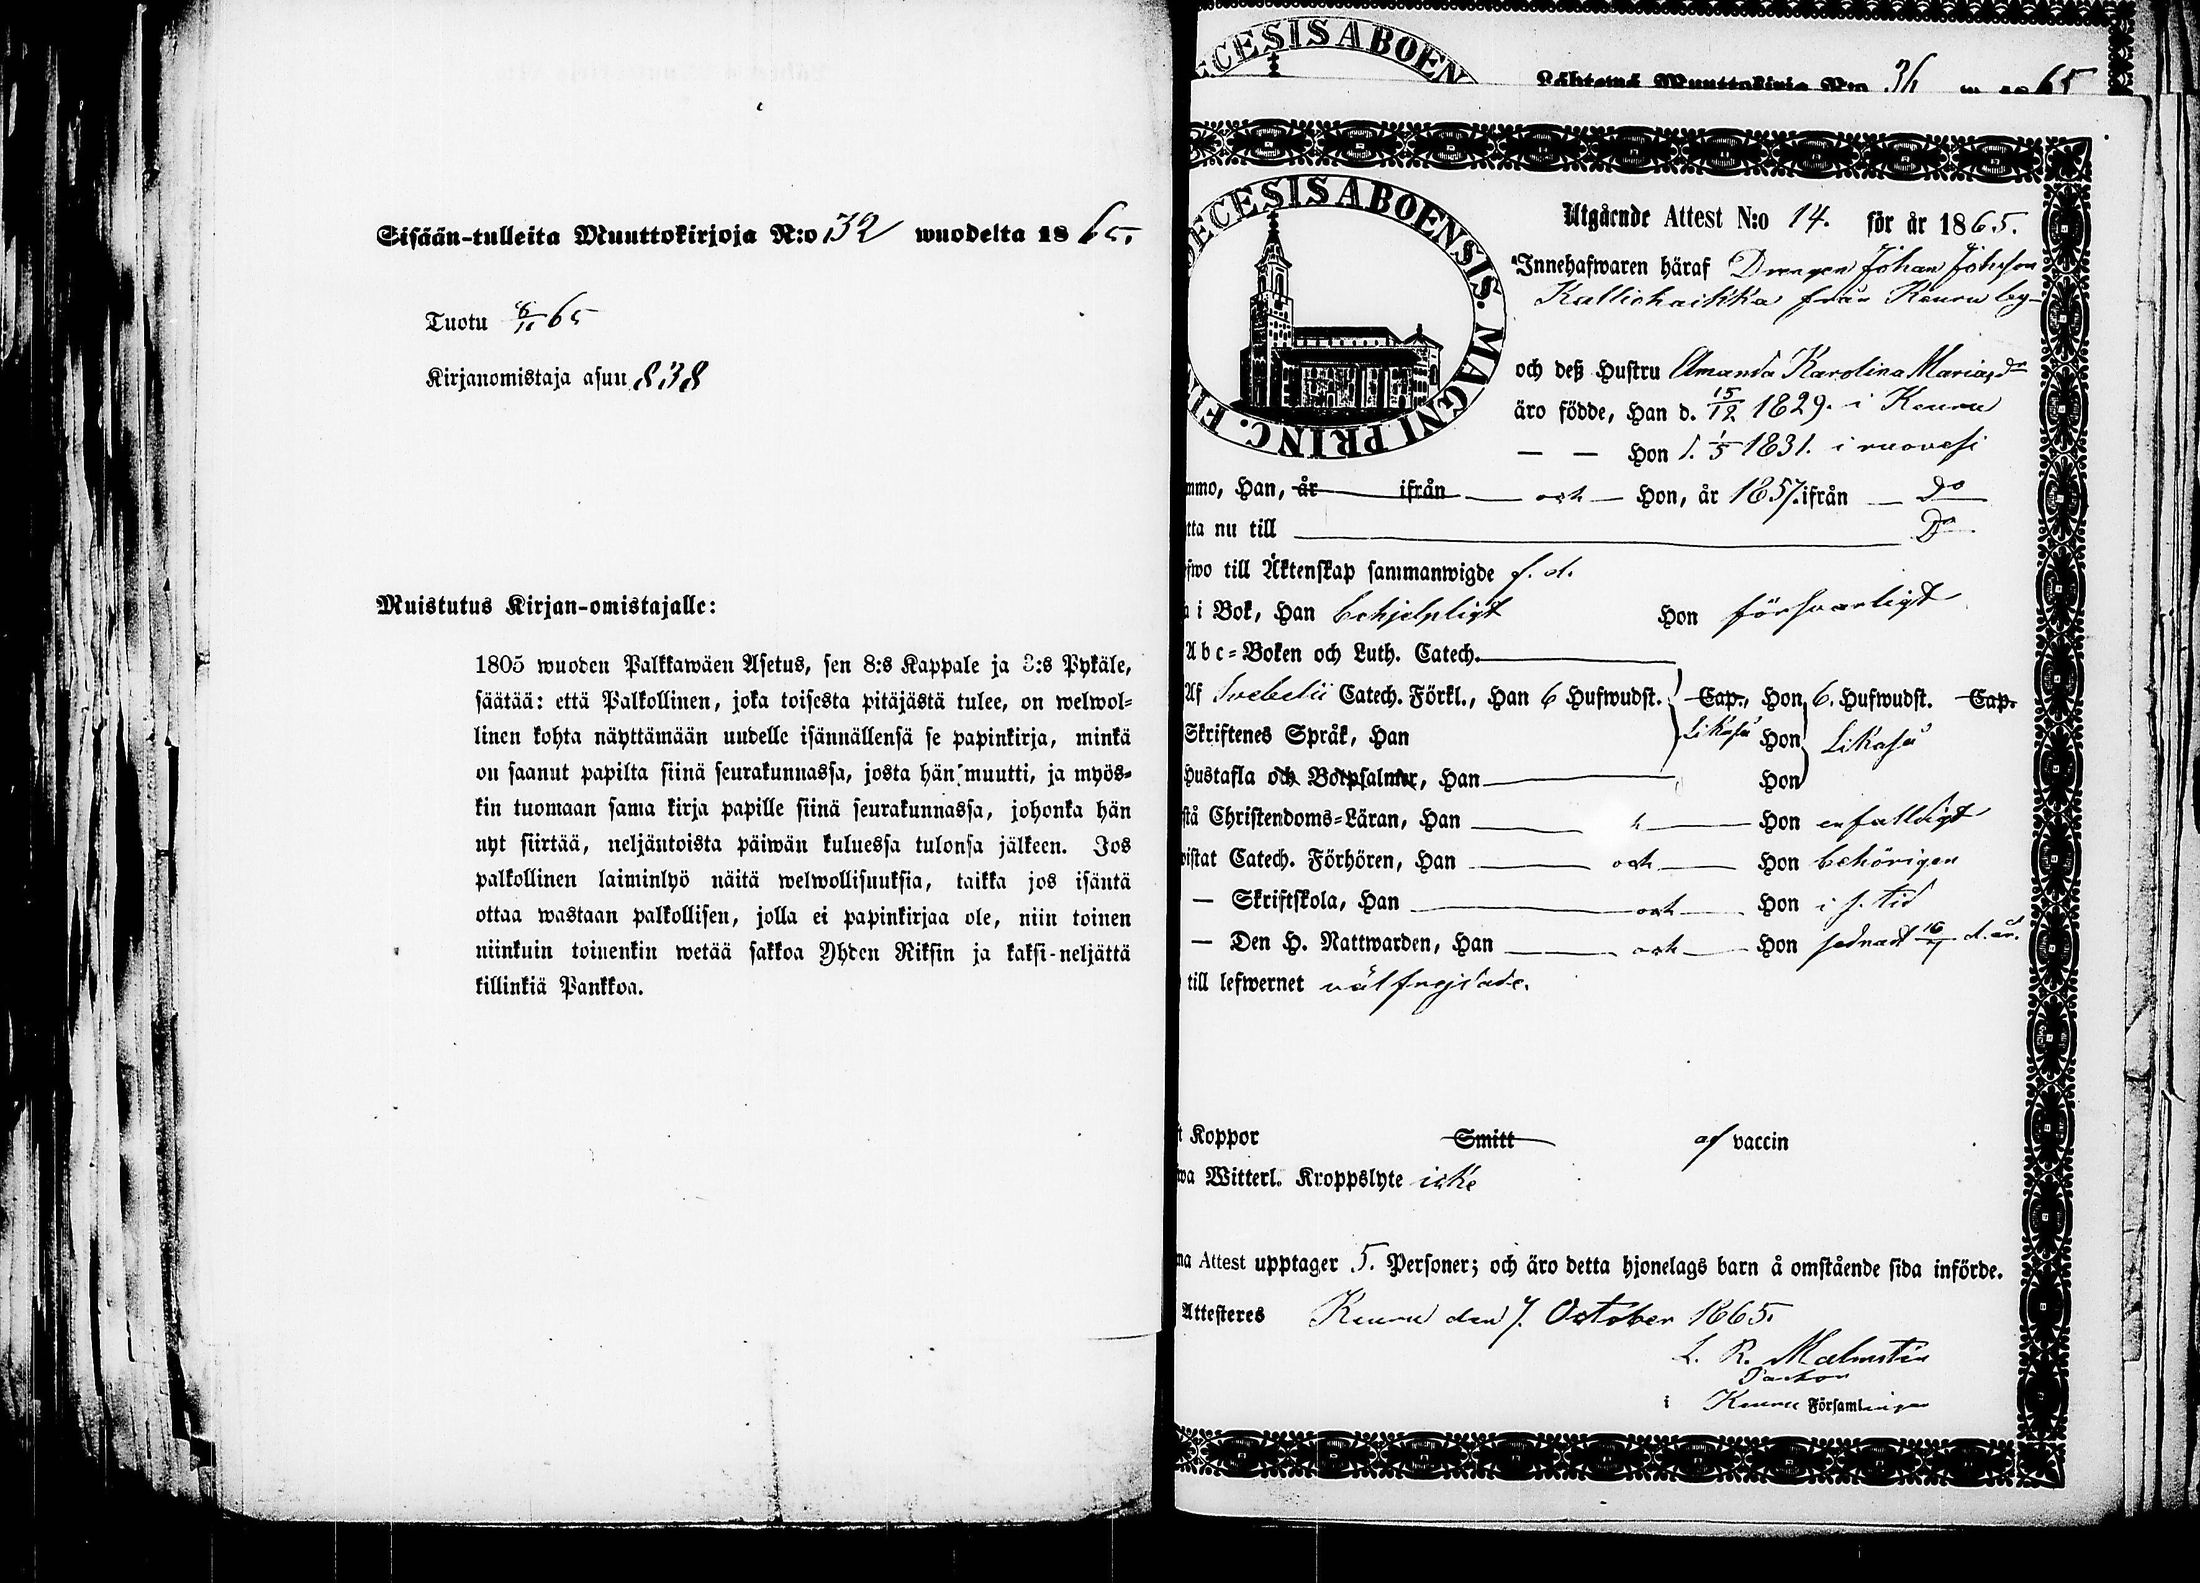 Sisään-tulleita Muuttokirjoja N:o 32 wuodelta 1865.
Tuotu 6/11 65
Kirjanomistaja asuu 838
Muistutus Kirjan-omistajalle:
1805 wuoden Palkkawäen Asetus, sen 8:s Kappale ja 3:s Pykäle,
säätää: että Palkollinen, joka toisesta pitäjästä tulee, on welwol-
linen kohta näyttämään uudelle isännällensä se papinkirja, minkä
on saanut papilta siinä seurakunnassa, josta hän muutti, ja myös-
kin tuomaan sama kirja papille siinä seurakunnassa, johonka hän
nyt siirtää, neljäntoista päiwän kuluessa tulonsa jälkeen. Jos
palkollinen laiminlyö näitä welwollisuuksia, taikka jos isäntä
ottaa wastaan palkollisen, jolla ei papinkirjaa ole, niin toinen
niinkuin toinenkin wetää sakkoa Yhden Riksin ja kaksi-neljättä
killinkiä Pankkoa.
ECESIS ABOEN
Lähtewä Muuttokirja N:o 36 w. 1865
DECESIS ABOENSIS. MAGNI PRINC. FI
Utgående Attest N:o 14. för år 1865.
Innehafwaren häraf Drengen Johan Johsson
Kalliohaikka från Keuru by
och deß Hustru Amanda Karolina Mariasdr
äro födde, Han d. 15/12 1829. i Keuru
— — Hon d. 1/5 1831. i ruovesi
mmo, Han, år ifrån och Hon, år 1857. ifrån Do
tta nu till Do
efwo till Äktenskap sammanwigde f. d.
a i Bok, Han behjelpligt Hon försvarligt
Abc-Boken och Luth. Catech.
Af Svebelii Catech. Förkl., Han 6 Hufwudst. Cap., Hon 6. Hufwudst. Cap.
Skriftenes Språk, Han Likaså Hon Likaså
Hustafla och Botpsalmer, Han Hon
stå Christendoms-Läran, Han Hon enfalldigt
wistat Catech. Förhören, Han och Hon behörigen
— Skriftskola, Han och Hon i s. tid
— Den H. Nattwarden, Han och Hon sednast d. år.
till lefwernet välfrejdade.
t Koppor Smitt af vaccin
wa Witterl. Kroppslyte icke
na Attest upptager 5. Personer; och äro detta hjonelags barn å omstående sida införde.
Attesteres Keuru den 7. October 1865.
L. R. Malmstén
Pastor
i Keuru Församlingar